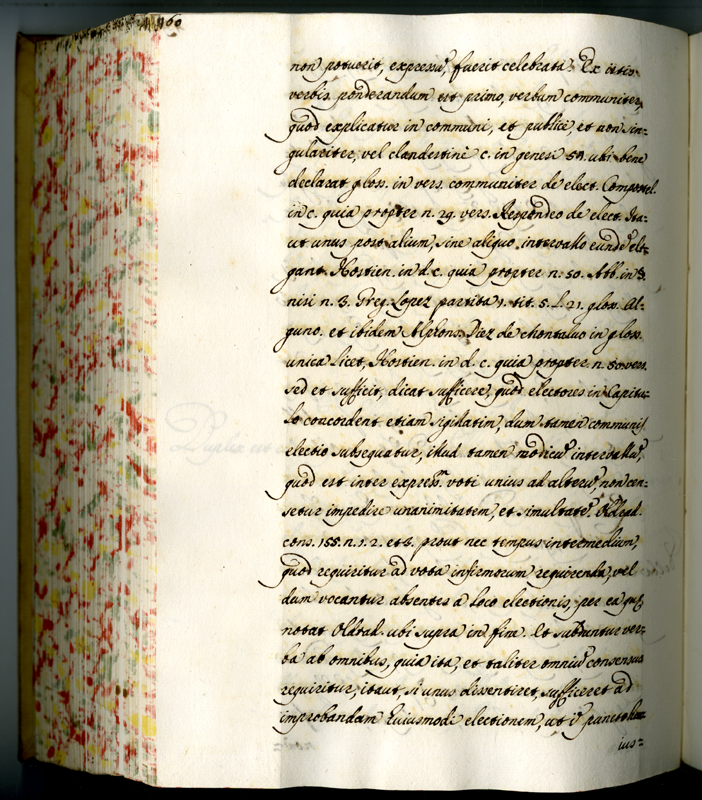 160
non potuerit, expressu, fuerit celebrata. Ex istis
verbis ponderandum est primo, verbum communiter,
quod explicatur in communi, et publice, et non sin=
gulariter, vel clandestine c. in genesi 59. ubi bene
declarat gloss. in vers. communiter de elect. Compostel.
in c. quia propter n. 29. vers. Respondeo de elect. Ita=
ut unus post alium, sine aliquo intervallo eunde eli=
gant. Hostien. in d. c. quia propter n. 50. Abb. in
nisi n. 3. Greg. Lopez partita 1. tit. 5. L. 21. glos. Al=
guno. et ibidem Alphons. Diez de Montaluo in gloss.
unica licet, Hostien. in d. c. quia propter. n. 50 vers.
sed et sufficit, dicat sufficere, quod electores in Capitu=
lo concordent etiam sigilatim, dum tamen communis
electio subsequatur, illud tamen modicu intervallu,
quod est inter express.m voti unius ad alteru, non cen=
setur impedire unanimitatem, et simultate. Oldrad.
cons. 155. n. 1. 2. et 3. prout nec tempus intermedium,
quod requiritur ad vota infirmorum requirenda, vel
dum vocantur absentes a loco electionis, per ea que
notat Oldrad. ubi supra in fine. Et subduntur ver=
ba ab omnibus, quia ita, et taliter omniu consensus
requiritur, itaut, si unus dissentiret, sufficeret ad
improbandam huiusmodi electionem, ut i puncto hu=
ius=